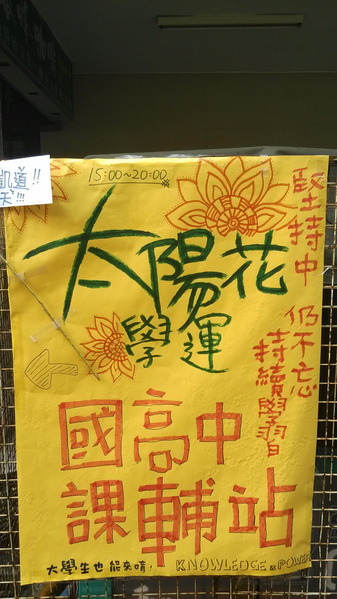 凱道!!
天!!!
15:00~20:00
太陽花
學運
堅持中
仍不忘
持續學習
國高中
課輔站
大學生也能來唷!
KNOWLEDGE is POWER